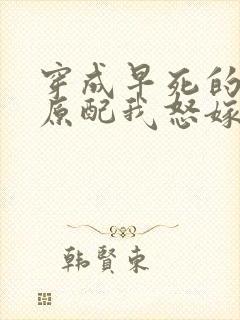 穿成早死的
原配我怒嫁
韩贤东